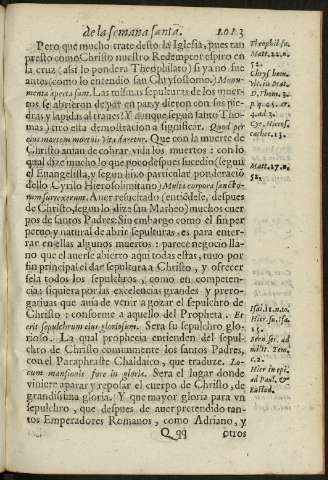 de la semana santa. 1013
Pero que mucho trate desto la Iglesia, pues tan
presto como Christo nuestro Redemptor espiro en
la cruz (assi lo pondera Theophilato) si ya no fue
antes (como lo entendio san Chrysostomo.) Monu-
menta aperta sunt. Las mismas sepulturas de los muer
tos se abrieron de par en par, y dieron con sus pie-
dras y lapidas al traues? Y aunque segun santo Tho-
mas) otro esta demostracion a significar. Quod per
eius mortem mortui vita daretur. Que con la muerte de
Christo auian de cobrar vida los muertos: con lo
qual dize mucho lo que poco despues sucedio (segun
el Euangelista, y segun lino particular ponderació
dello Cyrilo Hierosolimitano) Multa corpora sancto-
rum surrexerunt. Auer resucitado (entiédele, despues
de Christo, segun lo dize san Matheo) muchos cuer
pos de santos Padres: Sin embargo, como el fin per
petuo y natural de abrir sepulturas, es para enter-
rar en ellas algunos muertos: parece negocio lla-
no que el auerse abierto aqui todas estas, tuuo por
fin principal el dar sepultura a Christo, y ofrecer
sela todos los sepulchros, como en competen-
cia; siquiera por las excelencias grandes y prero-
gatiuas que auia de venir a gozar el sepulchro de
Christo: conforme a aquello del Propheta. Et
erit sepulchrum eius gloriosum. Sera su sepulchro glo-
rioso. La qual prophecia entienden del sepul-
chro de Christo comunmente los santos Padres,
con el Paraphraste Chaldaico, que traduze. Lo-
cum mansionis fore in gloria. Sera el lugar donde
viniere a parar y reposar el cuerpo de Christo, de
grandissima gloria. (Y que mayor gloria para vn
sepulchro, que despues de auer pretendido tan-
tos Emperadores Romanos, como Adriano, y
Qqq otros
Theophil. su.
Matt. 22. n.
52.
Chrys hom.
D. Thom. 3.
p. q. 45. ar.
4. ad. 3.
Cyr. Hieros.
cathec. 13.
Matt. 27. n.
52.
Isai. 11. n. 10.
Hier. su. Isa.
15.
Hier in epi.
ad Paul. &
Eustoc.